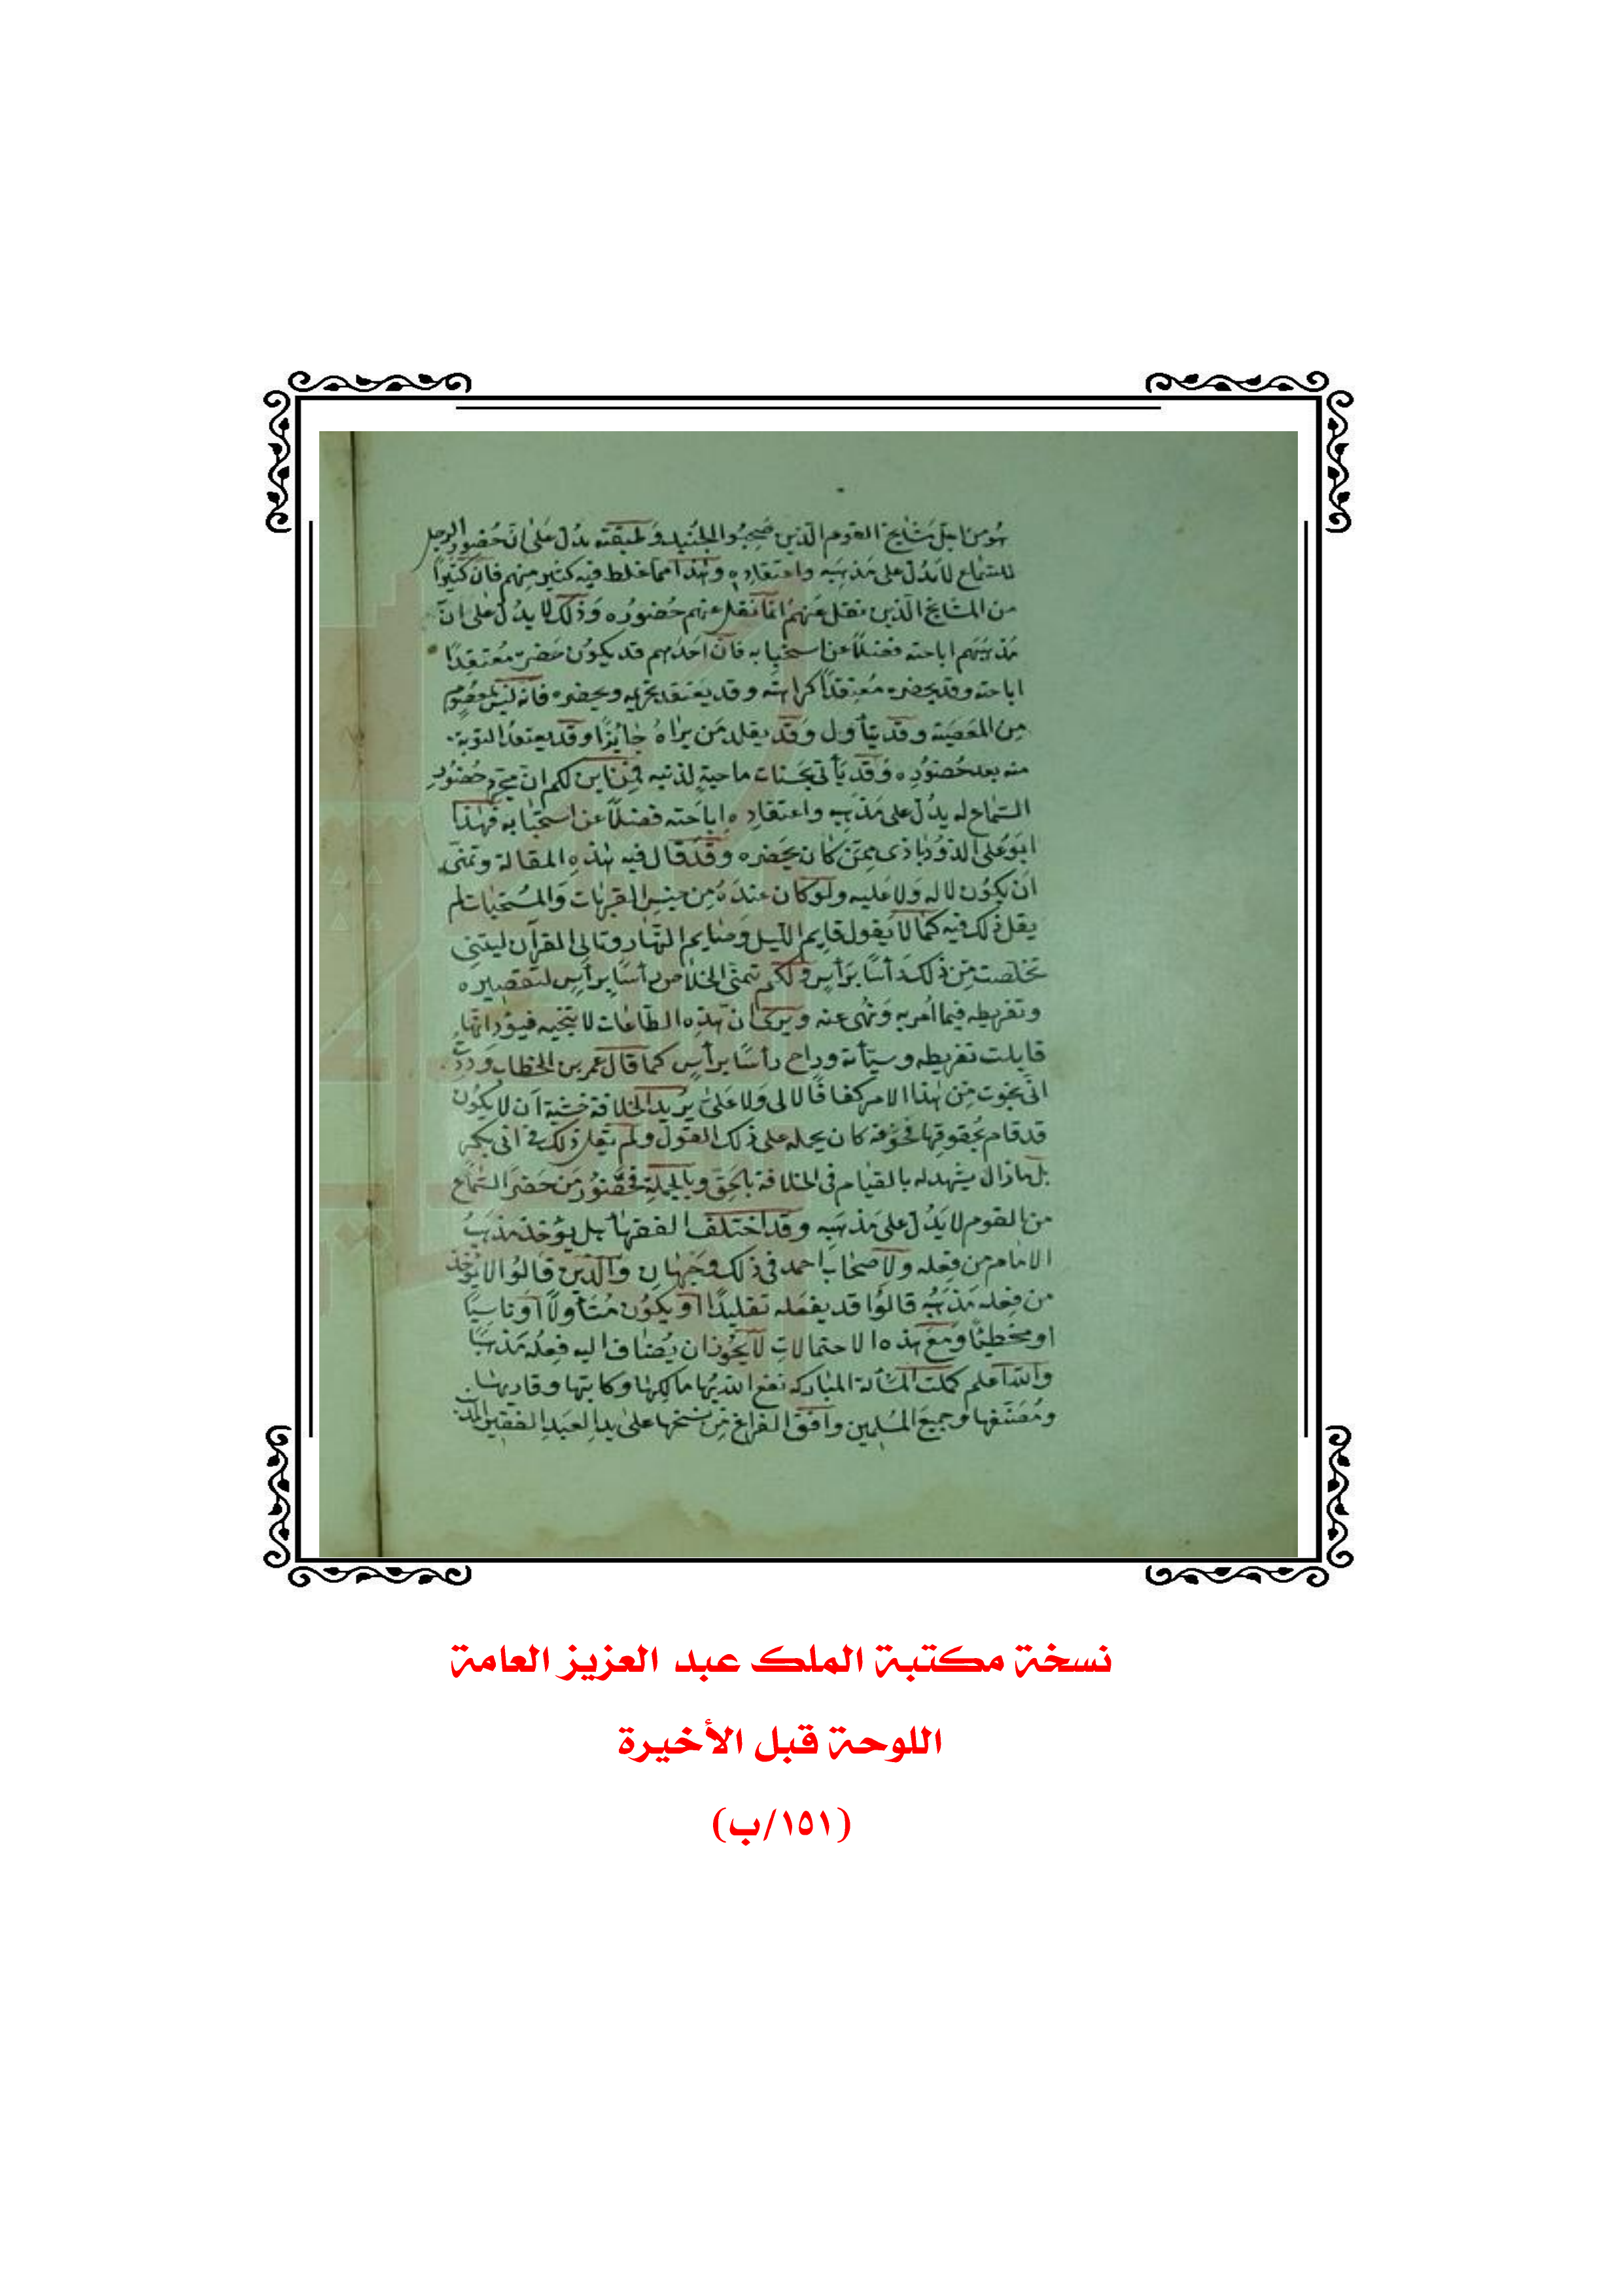 هُو من اجل مَشايخ القوم الّذين صَحِبُوا الجُنَيد وَطبقته يدُل عَلى انّ حُضور الرجل
للسَّماع لا يَدُل على مَذهَبه واعتقاده وهٰذا مما غلط فيه كثير منهم فان كثيرًا
من المشايخ الّذين نقل عَنهمُ انما نقل عنهم حُضورُه وَذلك لا يدُل على انّ
مَذهبَهم اباحته فضلًا عن استحبابه فانّ احَدَهم قد يكوُن حَضَر مُعتقدًا
اباحته وقد يحضره مُعتقدًا كراهته وقد يَعتقد تحريمه ويحضره فانه ليس بمعصُوم
مِن المَعصِيَة وقد يتأول وَقد يقلد مَن يَراهُ جٰايُزًا وقد يعتقدُ التوبة
منه بعد حُضوُرِه وَقد يَأتي بحسَنات ماحيةٍ لذنبه فمِن اين لكم انّ مجرد حُضوُر
السَّماع له يدُل على مَذهَبِه واعتقادِه اباحَته فضلًا عن استحبَابه فَهٰذا
ابوُ علي الذودباذى ممَّن كان يَحضره وَقَد قال فيه هٰذه المقالة وتمنّى
اَن يكوُن لا له وَلا عَليه ولو كان عندَهُ مِن جنسِ القربات وَالمسُتحبات لم
يقل ذلك فيه كما لا يَقول قايم الليل وَصَايم النّهار وتالى القرآن ليتني
تخلصت مِن ذلك رَأسًا بَرأسٍ ولكن تمنى الخلاص رأسًا برأسٍ لتقصيره
وتفريطه فيما اُمر به وَنُهى عنه ويرَى انّ هذه الطّاعات لا تنجيه فيؤد انّها
قابلت تفريطه وسيّآته وراح رأسًا برأس كما قال عمر بن الخطاب وَددتُ
انّي نجوت مِن هٰذا الامر كفافًا لا لى وَلا عَلىّ يرُيد الخلافة خشية اَن لا يكوُن
قد قام بحُقوقها فخوفه كان يحمله على ذلك القول ولم يَقل ذلك في ابى بكر
بل ما زال يشهد له بالقيام في الخلافة بالحَق وبالجملة فحُضُور مَن حَضَر السَّماع
من القوم لا يَدُل على مَذهَبِه وقد اختلف الفقهاء بل يؤخذ مَذهبُ
الامام من فِعله ولاصحاب احمد في ذلك وَجهان وَالّذين قالوُا لا يُؤخذ
من فعله مَذهَبُه قالوُا قد يفعَله تقليدًا اَو يكوُن مُتَأولًا اَو ناسيًا
او مخطئًا وَمَع هذه الاحتمالاتِ لا يَجوُز ان يُضاف اليه فِعلُه مَذهبًا
وَاللّه اعلم كملت المسألة المباركه نفع اللّه بها مالكها وكاتبها وقاريها
ومُصَنّفها وجميعَ المسُلمين وافقَ الفراغ مِن نسَخها عَلىٰ يدِ العَبدِ الفقير المذنب
نسخة مكتبة الملك عبد العزيز العامة
اللوحة قبل الأخيرة
(١٥١/ب)